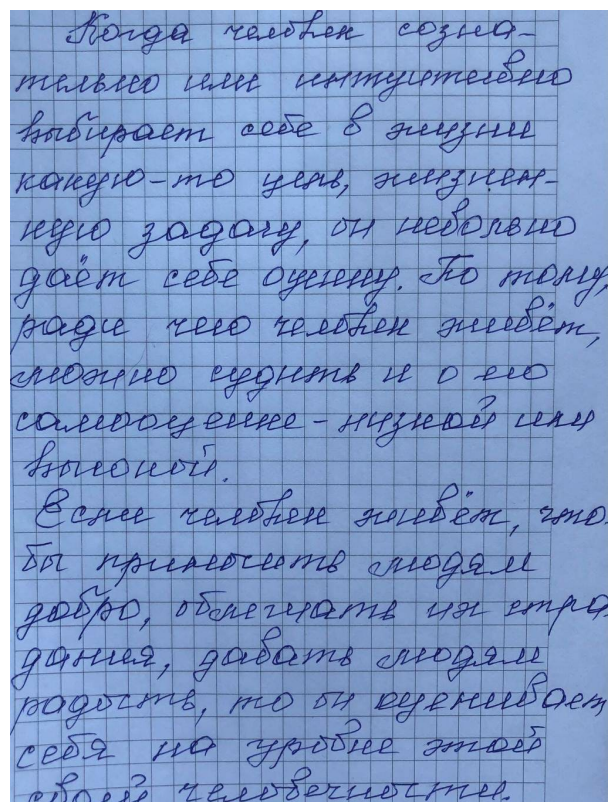 Когда человек созна-
тельно или интуитивно
выбирает себе в жизни
какую-то цель, жизнен-
ную задачу, он невольно
даёт себе оценку. По тому,
ради чего человек живёт,
можно судить и о его
самооценке - низкой или
высокой.
Если человек живёт, что-
бы приносить людям
добро, облегчать их стра
дания, давать людям
радость, то он оценивает
себя на уровне этой
своей человечности.